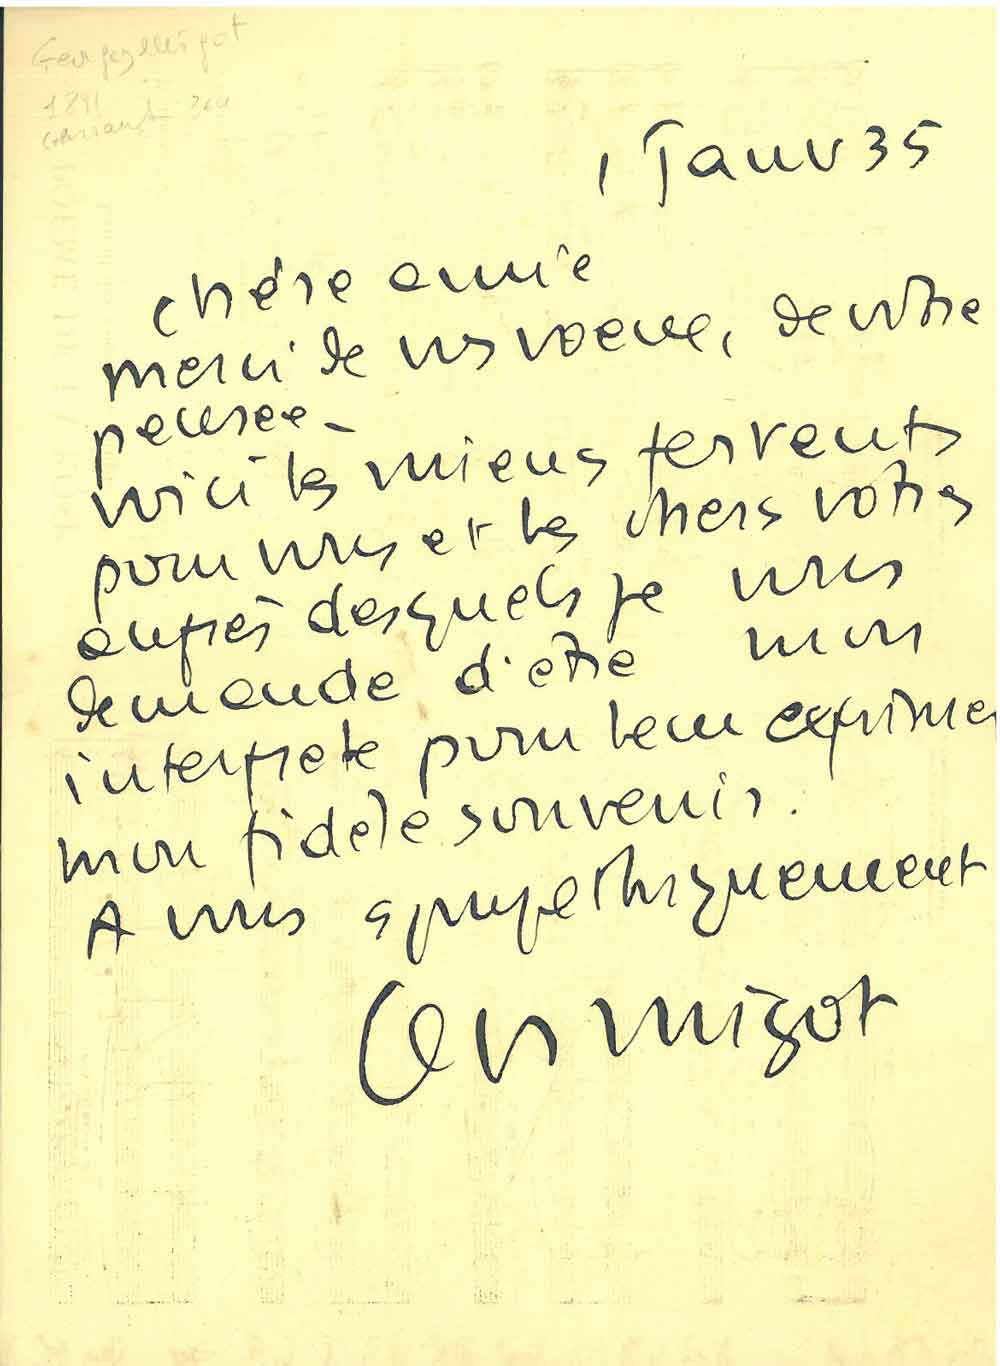 Georges Migot
1891
1 Janv 35
chère amie
merci de vos voeux, de votre
pensée _
voici les miens fervents
pour vous et les chers votres
auprès desquels je vous
demande d'être mon
interprete pour leur exprimer
mon fidèle souvenir.
A vous sympathiquement
Geo Migot